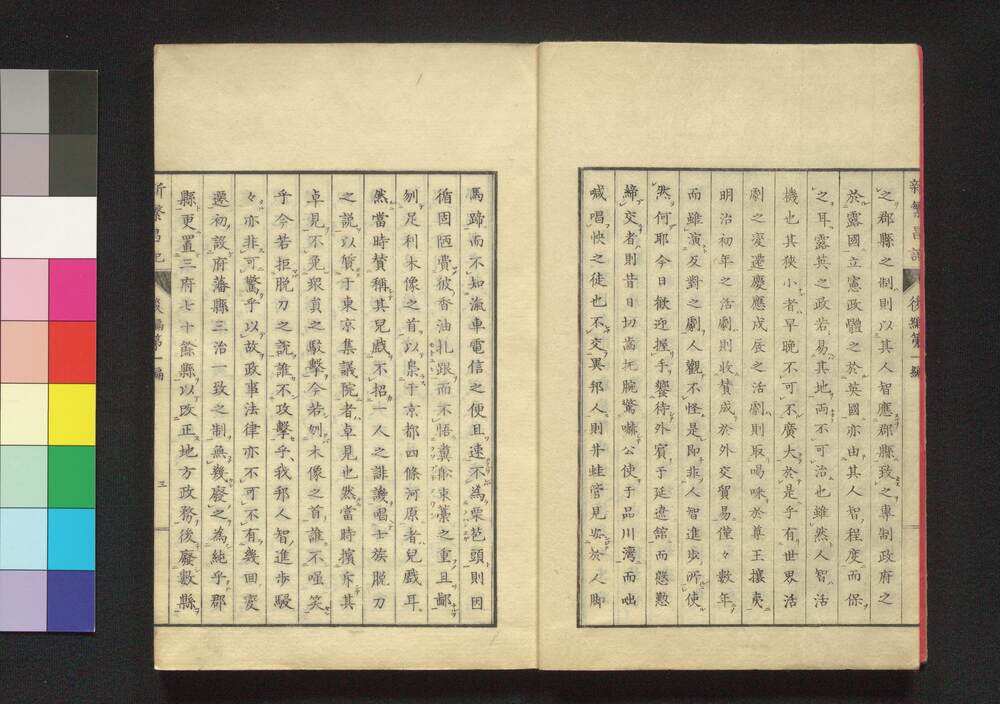 之郡縣之制則以其人智應郡縣致之專制政府之
於露國立憲政體之於英國亦由其人智程度而保
之耳露英之政若易其地両不可治也雖然人智活
機也其狹小者早晩不可不廣大於是乎有世界活
劇之変遷慶應戊辰之活劇則取喝咏於尊王攘夷
明治初年之活劇則收賛成於外交貿易僅々數年
而雖演反對之劇人觀不怪是即非人智進歩所使
然何耶今日歡迎握手饗待外賓于延遼舘而慇懃
締交者則昔日切齒扼腕驚嚇公使于品川灣而咄
喊唱快之徒也不交異邦人則井蛙管見安於人脚
馬蹄而不知滊車電信之便且速不為栗笆頭則因
循固陋費彼香油扎跟而不悟糞假束藁之重且鄙
刎足利木像之首以梟于京都四條河原者兒戲耳
然當時賛稱其兒戲不招一人之誹譏唱士族脱刀
之説以質于東京集議院者卓見也然當時擯斥其
卓見不免衆員之駁擊今若刎木像之首誰不嗤笑
乎今若拒脱刀之説誰不攻擊乎我邦人智進歩駸
々亦非可驚乎以故政事法律亦不可不有幾回変
遷初設府藩縣三治一致之制無幾廢之為純乎郡
縣更置三府七十餘縣以改正地方政務後廢數縣
新繁昌記
後編第一編
三